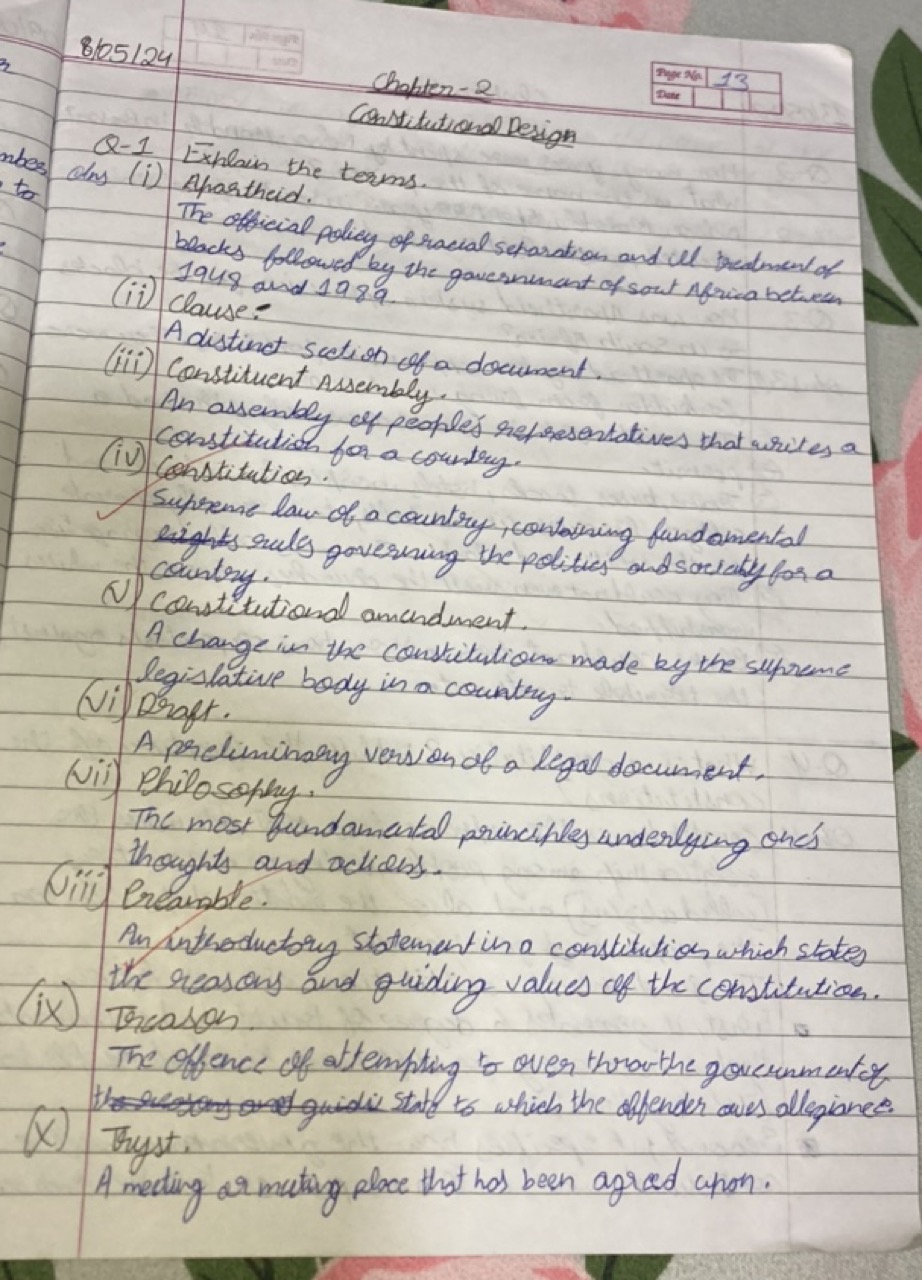 8/05/24
Page No. 13
Date
Chapter-2
Constitutional Design
Q-1 Explain the terms.
Ans (i) Apartheid.
The official policy of racial separation and ill treatment of
blacks followed by the government of sout Africa between
1948 and 1989.
(ii) Clause:
A distinct section of a document.
(iii) Constituent Assembly.
An assembly of people's representatives that writes a
constitution for a country.
(iv) Constitution.
Supreme law of a country, containing fundamental
rights rules governing the politics and society for a
country.
(v) Constitutional amendment.
A change in the constitution made by the supreme
legislative body in a country.
(vi) Draft.
A preliminary version of a legal document.
(vii) Philosophy.
The most fundamental principles underlying one's
thoughts and actions.
(viii) Preamble.
An introductory statement in a constitution which states
the reasons and guiding values of the constitution.
(ix) Treason.
The offence of attempting to over throw the government of
the reasons and guidi state to which the offender owes allegiance.
(x) Tryst.
A meeting or meeting place that has been agreed upon.
mber
to